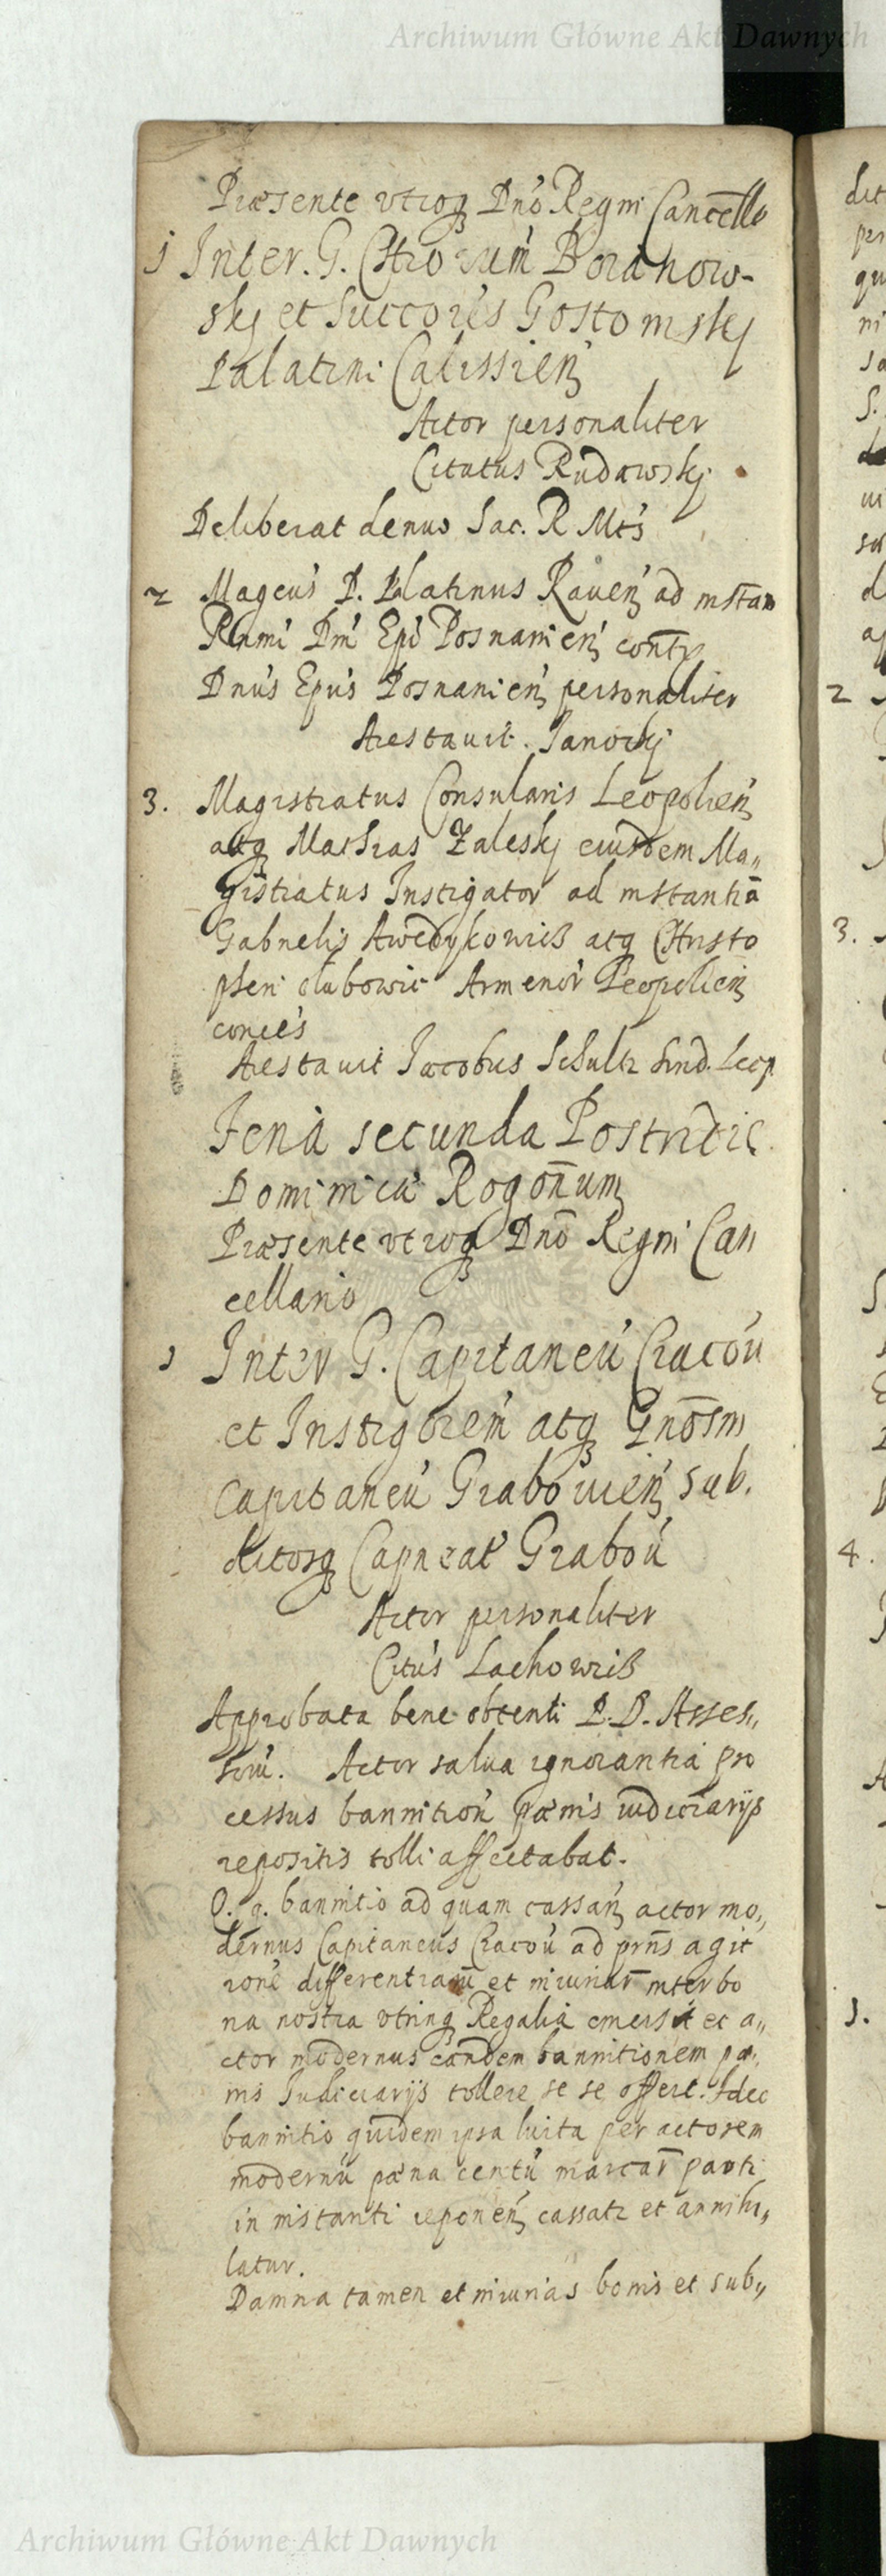 Archiwum Główne Akt Dawnych
Præsente vtroq Dno Regni Cancello
1 Inter. G. Boranow-
skj et Succores Gostomskj
Palatini Calissien
Actor personaliter
Citatus Rudawskj
Deliberat denuo Sac. R Mts
2 Magcus P. Palatinus Rauen ad instan
Rmi Dni Epi Posnanien
Dnus Epus Posnanien personaliter
Arestauit. Janockj
3. Magistratus Consularis Leopolien
atq Mathias Zaleskj eiusdem Ma„
gistratus Instigator ad instantia
Gabrielis Awedykowicz atq Christo
pheri Armenor Leopolien
Arestauit Jacobus Schultz Sind. Leop
Feria secunda Postridie
Dominica Rogonum
Præsente vtroq Dno Regni Can
cellario
1 Inter G. Capitaneu Cracou
et Instigtorem atq Gnosm
Capitaneu Grabouien sub.
ditosq Capneat Grabou
Actor personaliter
Citus Lachowicz
Approbata bene obtenti P. D. Asses„
soru. Actor salua ignorantia pro
cessus bannition pænis iudiciarijs
repositis tolli affectabat.
Q. q. bannitio ad quam cassan actor mo„
dernus Capitaneus Cracou ad prns agit
rone differentiaru et iniuriar inter bo
na nostra vtrinq Regalia emersit et a„
ctor modernus eandem bannitionem pæ„
nis Judiciarijs tollere se se offert. Ideo
bannitio quidem ipsa luita per actorem
modernu pæna centu marcar parti
in instanti reponen cassatr et annihi„
latur.
Damna tamen et iniurias bonis et sub„
dit
2
3.
4.
Archiwum Główne Akt Dawnych